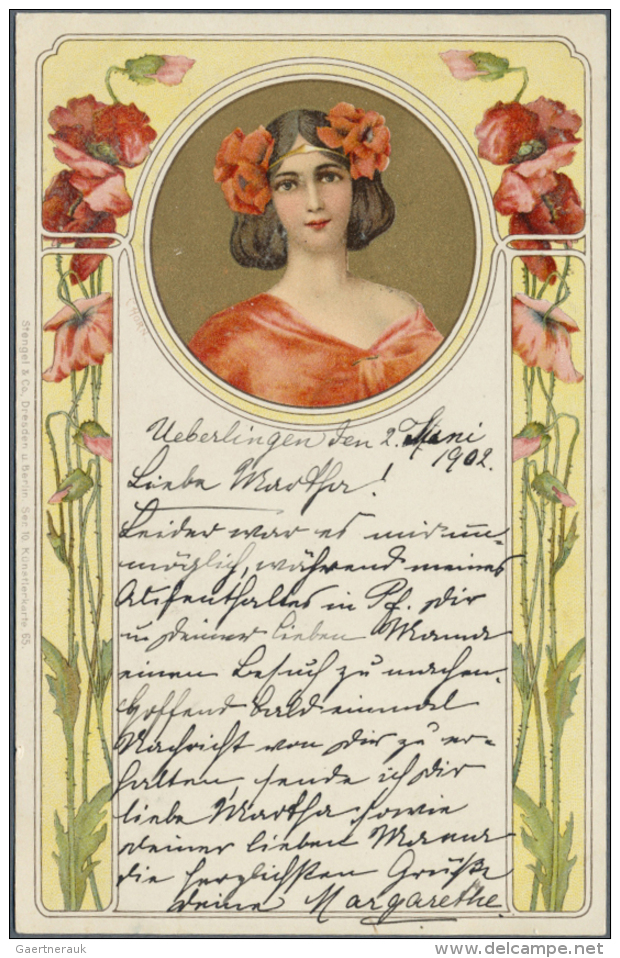 Ueberlingen den 2. Juni
1902.
Liebe Martha!
Leider war es mir un-
möglich, während meines
Aufenthaltes in Pf. Dir
u. Deiner lieben Mama
einen Besuch zu machen.
Hoffend bald einmal
Nachricht von Dir zu er-
halten sende ich Dir
liebe Martha sowie
Deiner lieben Mama
die herzlichsten Grüße
Deine Margarethe.
Stengel & Co., Dresden u. Berlin. Ser. 10. Künstlerkarte 65.
Gaertnerauk
www.delcampe.net